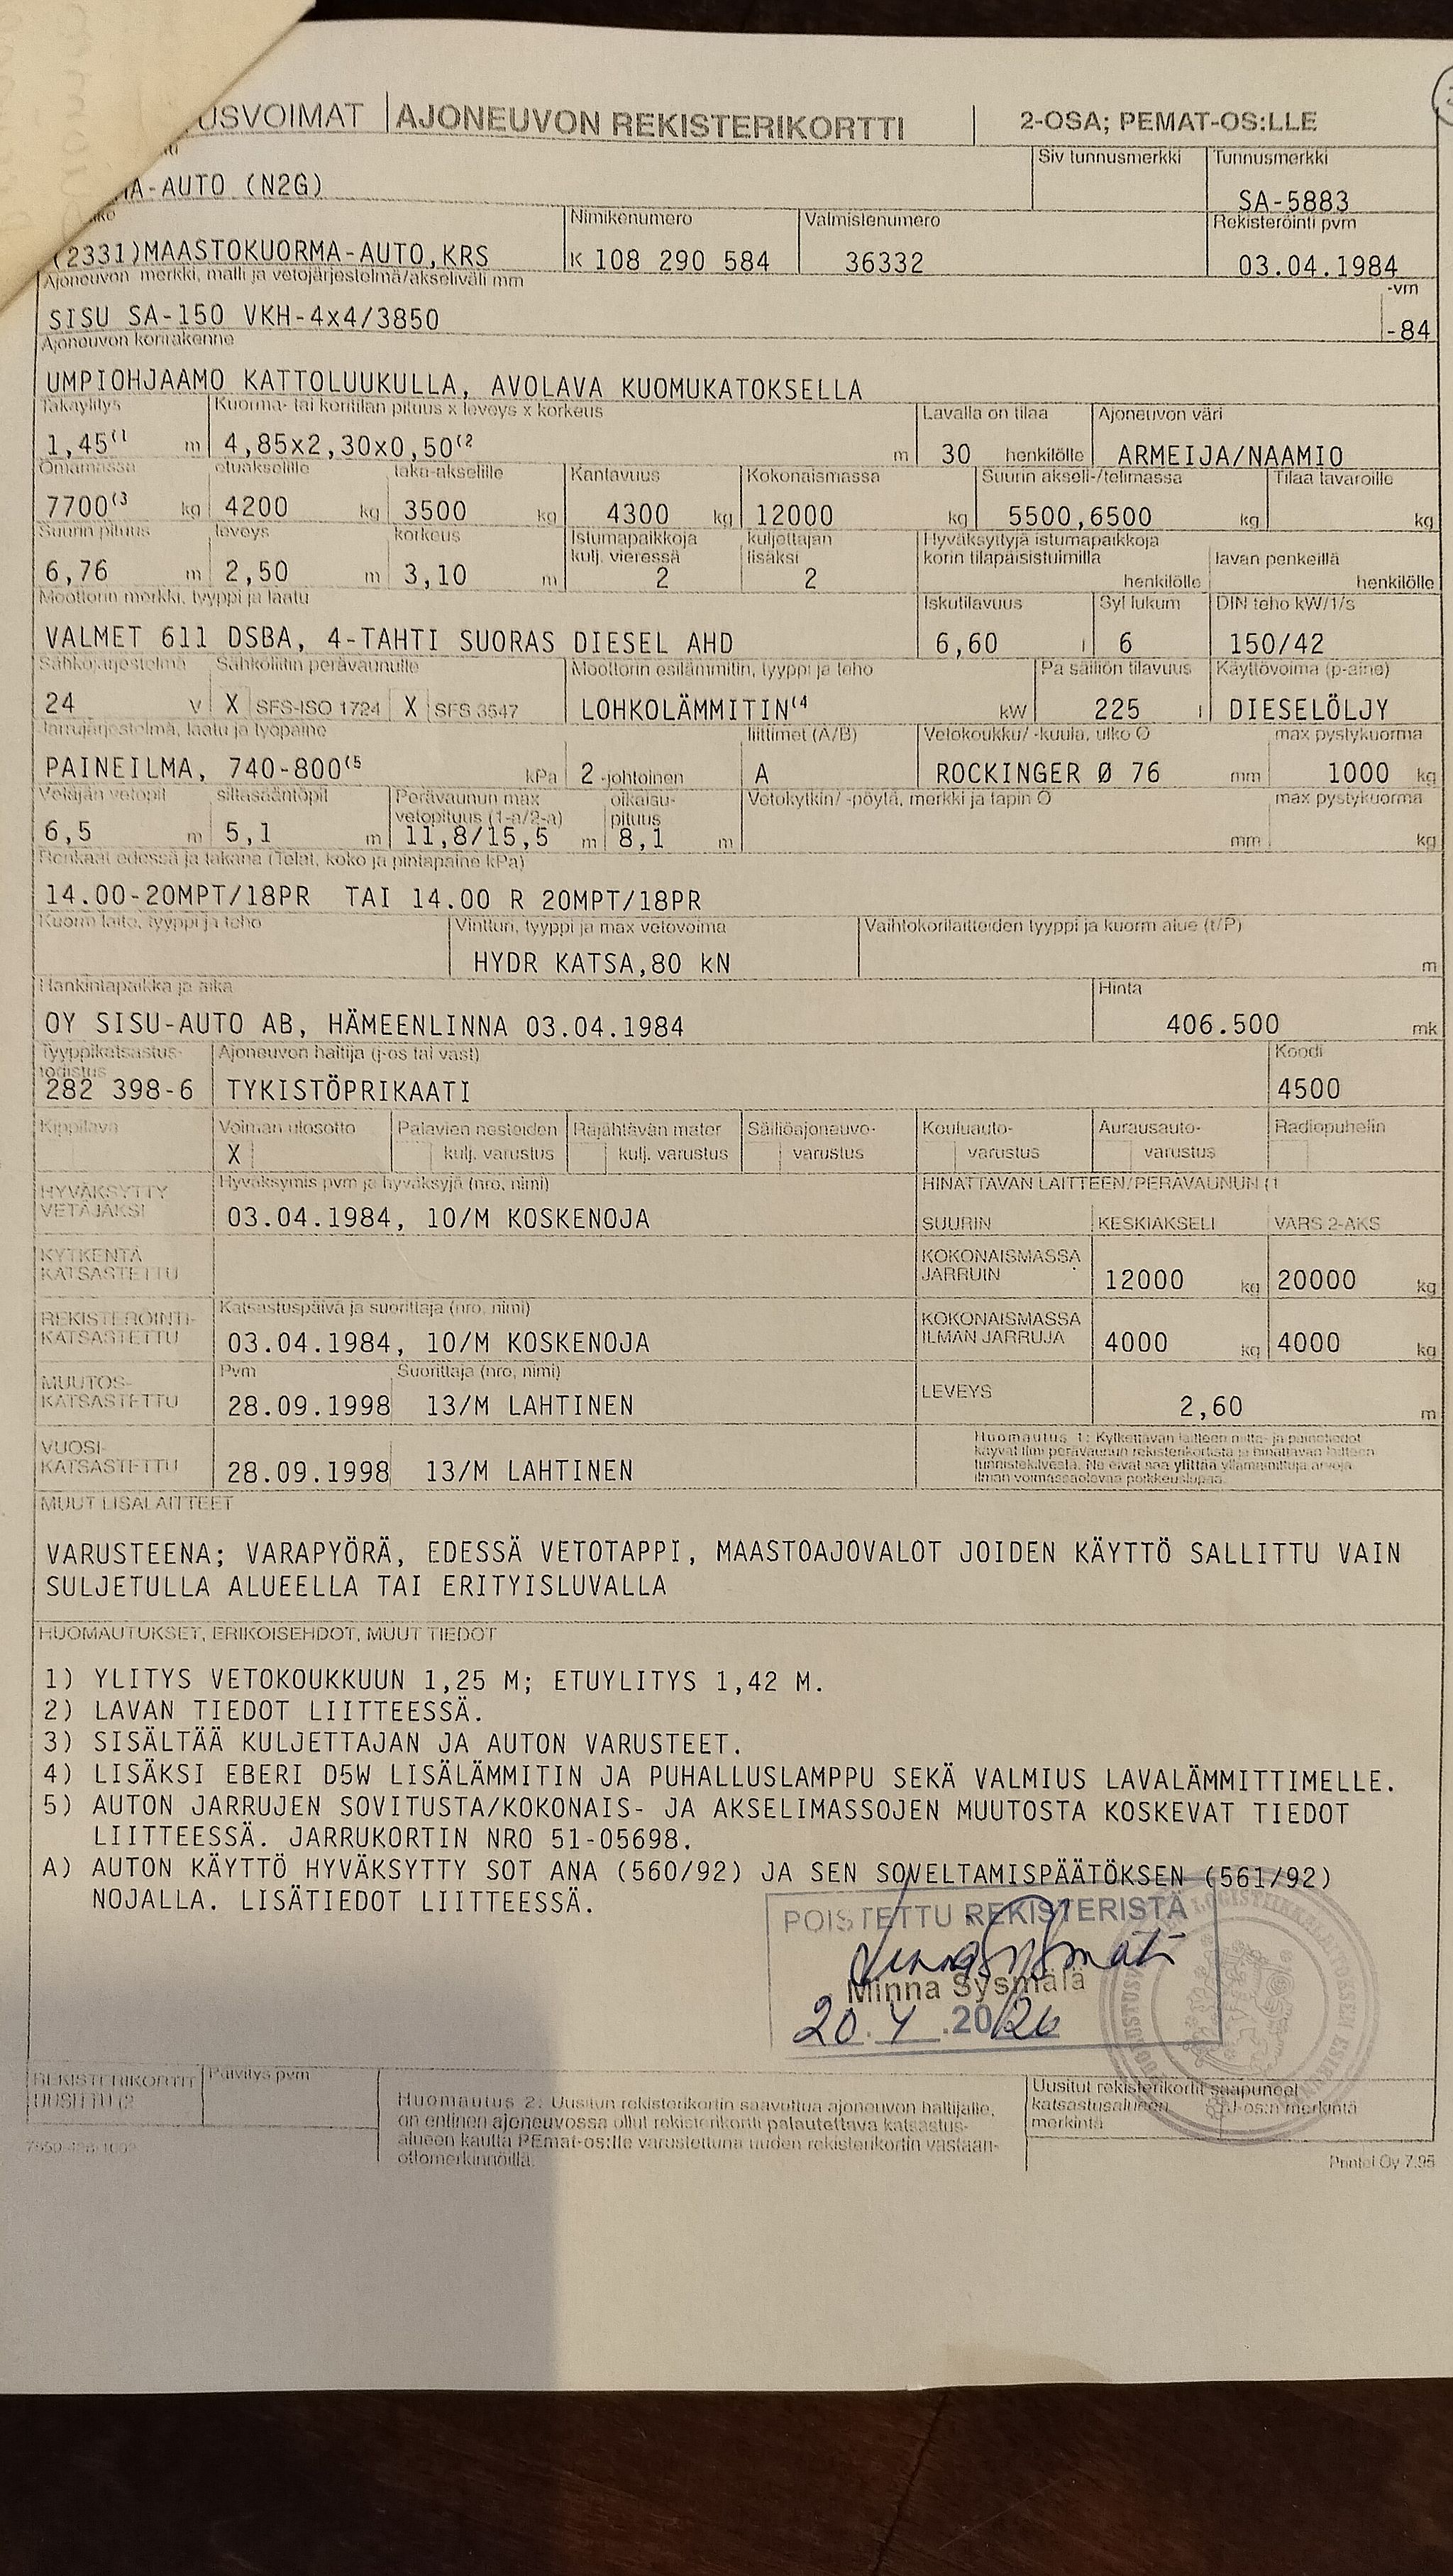 USVOIMAT AJONEUVON REKISTERIKORTTI 2-OSA; PEMAT-OS:LLE
Siv tunnusmerkki Tunnusmerkki
MA-AUTO (N2G) SA-5883
Nimikenumero Valmistenumero Rekisteröinti pvm
(2331)MAASTOKUORMA-AUTO,KRS K 108 290 584 36332 03.04.1984
Ajoneuvon merkki, malli ja vetojärjestelmä/akseliväli mm -vm
SISU SA-150 VKH-4x4/3850 -84
Ajoneuvon korirakenne
UMPIOHJAAMO KATTOLUUKULLA, AVOLAVA KUOMUKATOKSELLA
Takaylitys Kuorma- tai koritilan pituus x leveys x korkeus Lavalla on tilaa Ajoneuvon väri
1,45(1 m 4,85x2,30x0,50(2 m 30 henkilölle ARMEIJA/NAAMIO
Omamassa etuakselille taka-akselille Kantavuus Kokonaismassa Suurin akseli-/telimassa Tilaa tavaroille
7700(3 kg 4200 kg 3500 kg 4300 kg 12000 kg 5500,6500 kg kg
Suurin pituus leveys korkeus Istumapaikkoja kulj. vieressä kuljettajan lisäksi Hyväksyttyjä istumapaikkoja korin tilapäisistuimilla lavan penkeillä
6,76 m 2,50 m 3,10 m 2 2 henkilölle henkilölle
Moottorin merkki, tyyppi ja laatu Iskutilavuus Syl lukum DIN teho kW/1/s
VALMET 611 DSBA, 4-TAHTI SUORAS DIESEL AHD 6,60 l 6 150/42
Sähköjärjestelmä Sähköliitin perävaunulle Moottorin esilämmitin, tyyppi ja teho Pa säiliön tilavuus Käyttövoima (p-aine)
24 V X SFS-ISO 1724 X SFS 3547 LOHKOLÄMMITIN(4 kW 225 l DIESELÖLJY
Jarrujärjestelmä, laatu ja työpaine liittimet (A/B) Vetokoukku/ -kuula, ulko Ö max pystykuorma
PAINEILMA, 740-800(5 kPa 2 -johtoinen A ROCKINGER Ø 76 mm 1000 kg
Vetäjän vetopit siltasääntöpit Perävaunun max vetopituus (1-a/2-a) oikaisu-pituus Vetokytkin/ -pöytä, merkki ja tapin Ö max pystykuorma
6,5 m 5,1 m 11,8/15,5 m 8,1 m mm kg
Renkaat edessä ja takana (Telat, koko ja pintapaine kPa)
14.00-20MPT/18PR TAI 14.00 R 20MPT/18PR
Kuorm laite, tyyppi ja teho Vintturi, tyyppi ja max vetovoima Vaihtokorilaitteiden tyyppi ja kuorm alue (t/P)
HYDR KATSA,80 kN m
Hankintapaikka ja aika Hinta
OY SISU-AUTO AB, HÄMEENLINNA 03.04.1984 406.500 mk
Tyyppikatsastus-todistus Ajoneuvon haltija (j-os tai vast) Koodi
282 398-6 TYKISTÖPRIKAATI 4500
Kippilava Voiman ulosotto Palavien nesteiden Räjähtävän mater Säiliöajoneuvo- Kouluauto- Aurausauto- Radiopuhelin
X kulj. varustus kulj. varustus varustus varustus varustus
HYVÄKSYTTY VETÄJÄKSI Hyväksymis pvm ja hyväksyjä (nro, nimi) HINATTAVAN LAITTEEN/PERÄVAUNUN (1
03.04.1984, 10/M KOSKENOJA SUURIN KESKIAKSELI VARS 2-AKS
KYTKENTÄ KATSASTETTU KOKONAISMASSA JARRUIN 12000 kg 20000 kg
REKISTERÖINTI-KATSASTETTU Katsastuspäivä ja suorittaja (nro, nimi)
03.04.1984, 10/M KOSKENOJA KOKONAISMASSA ILMAN JARRUJA 4000 kg 4000 kg
MUUTOS-KATSASTETTU Pvm Suorittaja (nro, nimi)
28.09.1998 13/M LAHTINEN LEVEYS 2,60 m
VUOSI-KATSASTETTU 28.09.1998 13/M LAHTINEN
Huomautus 1: Kytkettävän laitteen mitta- ja painotiedot
käyvät ilmi perävaunun rekisterikortista ja hinattavan laitteen
tunnistekilvestä. Ne eivät saa ylittää yllämainittuja arvoja
ilman voimassaolevaa poikkeuslupaa.
MUUT LISÄLAITTEET
VARUSTEENA; VARAPYÖRÄ, EDESSÄ VETOTAPPI, MAASTOAJOVALOT JOIDEN KÄYTTÖ SALLITTU VAIN
SULJETULLA ALUEELLA TAI ERITYISLUVALLA
HUOMAUTUKSET, ERIKOISEHDOT, MUUT TIEDOT
1) YLITYS VETOKOUKKUUN 1,25 M; ETUYLITYS 1,42 M.
2) LAVAN TIEDOT LIITTEESSÄ.
3) SISÄLTÄÄ KULJETTAJAN JA AUTON VARUSTEET.
4) LISÄKSI EBERI D5W LISÄLÄMMITIN JA PUHALLUSLAMPPU SEKÄ VALMIUS LAVALÄMMITTIMELLE.
5) AUTON JARRUJEN SOVITUSTA/KOKONAIS- JA AKSELIMASSOJEN MUUTOSTA KOSKEVAT TIEDOT
LIITTEESSÄ. JARRUKORTIN NRO 51-05698.
A) AUTON KÄYTTÖ HYVÄKSYTTY SOT ANA (560/92) JA SEN SOVELTAMISPÄÄTÖKSEN (561/92)
NOJALLA. LISÄTIEDOT LIITTEESSÄ.
POISTETTU REKISTERISTÄ
Minna Sysmälä
20.4.20/26
REKISTERIKORTIT UUSITTU (2 Päivitys pvm
Huomautus 2: Uusitun rekisterikortin saavuttua ajoneuvon haltijalle,
on entinen ajoneuvossa ollut rekisterikortti palautettava katsastus-
alueen kautta PEmat-os:lle varustettuna uuden rekisterikortin vastaan-
ottomerkinnöillä.
Uusitut rekisterikortit saapuneet
katsastusalueen J-os:n merkintä
merkintä
Printel Oy 7.95